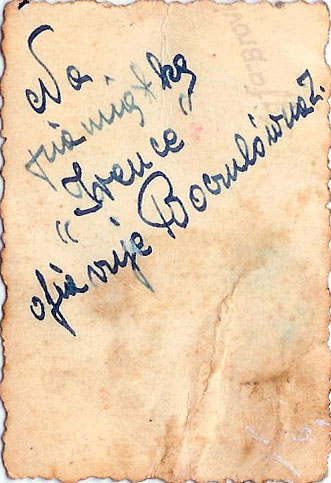 Na
pamiątkę
"Irence"
ofiaruje Boculówna Z.